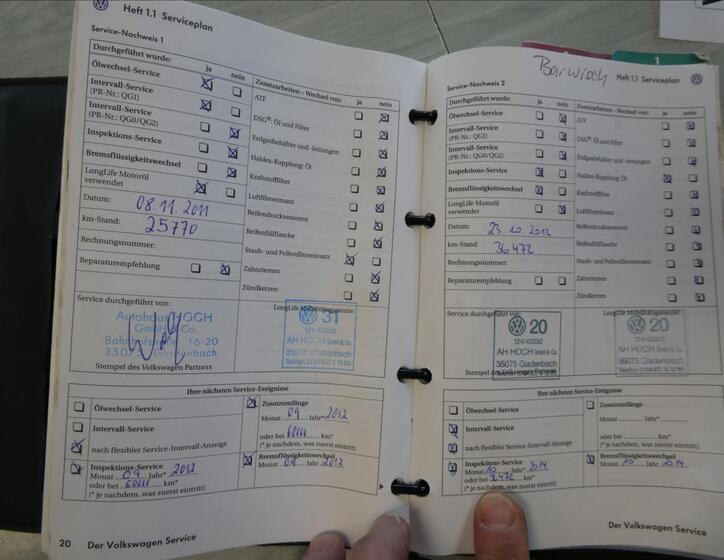 Heft 1.1 Serviceplan
Service-Nachweis 1
Durchgeführt wurde: ja nein
Ölwechsel-Service
Intervall-Service
(PR-Nr.: QG1)
Intervall-Service
(PR-Nr.: QG0/QG2)
Inspektions-Service
Bremsflüssigkeitswechsel
LongLife Motoröl
verwendet
Datum: 08.11.2011
km-Stand: 25770
Rechnungsnummer:
Reparaturempfehlung
Zusatzarbeiten – Wechsel von: ja nein
ATF
DSG®: Öl und Filter
Erdgasbehälter und -leitungen
Haldex-Kupplung: Öl
Kraftstofffilter
Luftfiltereinsatz
Reifendrucksensoren
Reifenfüllflasche
Staub- und Pollenfiltereinsatz
Zahnriemen
Zündkerzen
Service durchgeführt von:
Autohaus HOCH
GmbH & Co.
Bahnhofstraße 16-20
35075 Gladenbach
Stempel des Volkswagen Partners
LongLife Mobilitätsgarantie:
31
AH HOCH GmbH & Co.
35075 Gladenbach
Ihre nächsten Service-Ereignisse
Ölwechsel-Service
Intervall-Service
nach flexibler Service-Intervall-Anzeige
Inspektions-Service
Monat 09 Jahr* 2012
oder bei 60000 km*
(* je nachdem, was zuerst eintritt)
Zusatzumfänge
Monat 09 Jahr* 2012
oder bei 60000 km*
(* je nachdem, was zuerst eintritt)
Bremsflüssigkeitswechsel
Monat 09 Jahr 2012
20 Der Volkswagen Service
1
Heft 1.1 Serviceplan
Service-Nachweis 2
Durchgeführt wurde: ja nein
Ölwechsel-Service
Intervall-Service
(PR-Nr.: QG1)
Intervall-Service
(PR-Nr.: QG0/QG2)
Inspektions-Service
Bremsflüssigkeitswechsel
LongLife Motoröl
verwendet
Datum: 23.10.2012
km-Stand: 36472
Rechnungsnummer:
Reparaturempfehlung
Zusatzarbeiten – Wechsel von: ja nein
ATF
DSG®: Öl und Filter
Erdgasbehälter und -leitungen
Haldex-Kupplung: Öl
Kraftstofffilter
Luftfiltereinsatz
Reifendrucksensoren
Reifenfüllflasche
Staub- und Pollenfiltereinsatz
Zahnriemen
Zündkerzen
Service durchgeführt von:
20
124/42030
AH HOCH GmbH & Co.
35075 Gladenbach
LongLife Mobilitätsgarantie:
20
124/42030
AH HOCH GmbH & Co.
35075 Gladenbach
Ihre nächsten Service-Ereignisse
Ölwechsel-Service
Intervall-Service
nach flexibler Service-Intervall-Anzeige
Inspektions-Service
Monat 10 Jahr* 2014
oder bei km*
(* je nachdem, was zuerst eintritt)
Zusatzumfänge
Monat Jahr*
oder bei km*
(* je nachdem, was zuerst eintritt)
Bremsflüssigkeitswechsel
Monat 10 Jahr 2014
Der Volkswagen Service